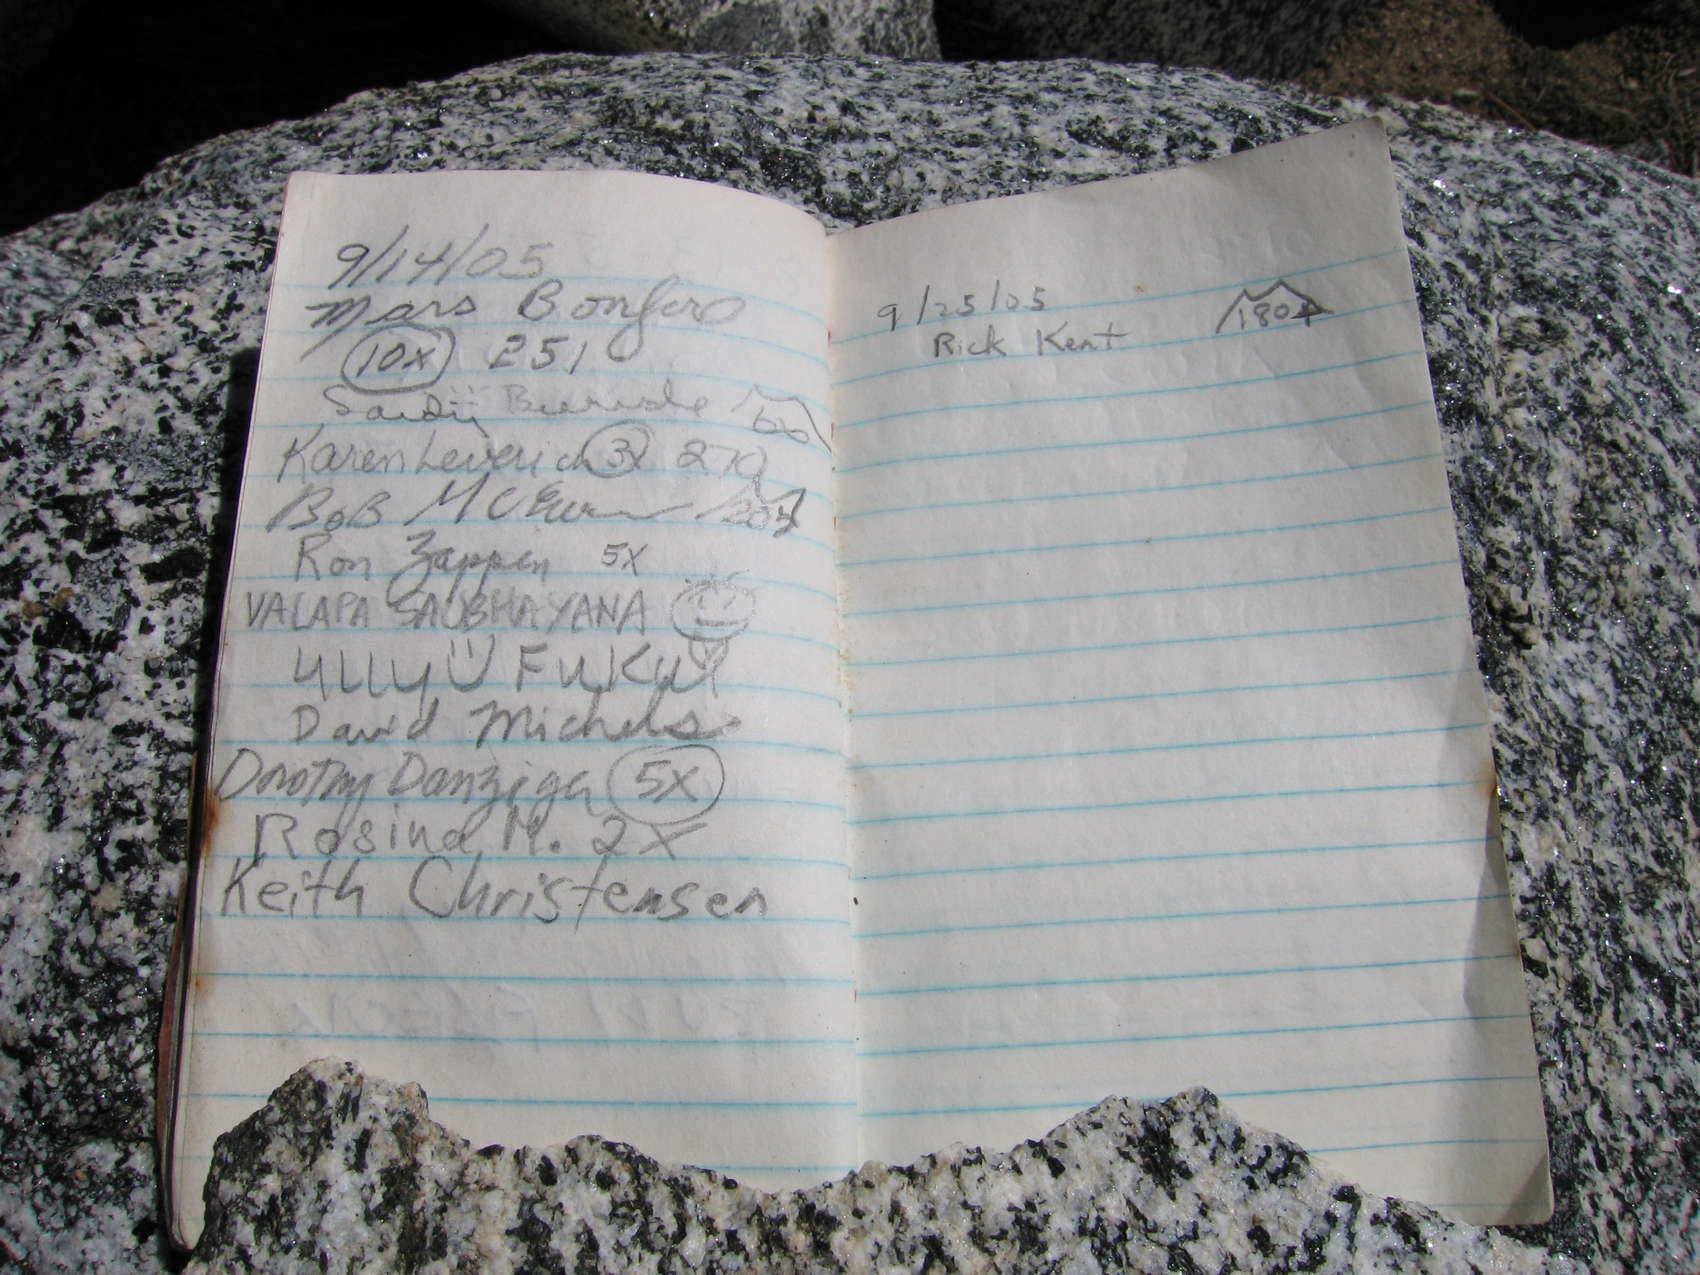 9/14/05
Mars Bonfire
10x 251
Sandy Burnside 60
Karen Leverich 3x 279
BoB McEwen 120x
Ron Zappen 5x
VALAPA SAUBHAYANA
FuKui
David Michels
Dorothy Danziger 5x
Rosina M. 2x
Keith Christensen
9/25/05 180x
Rick Kent